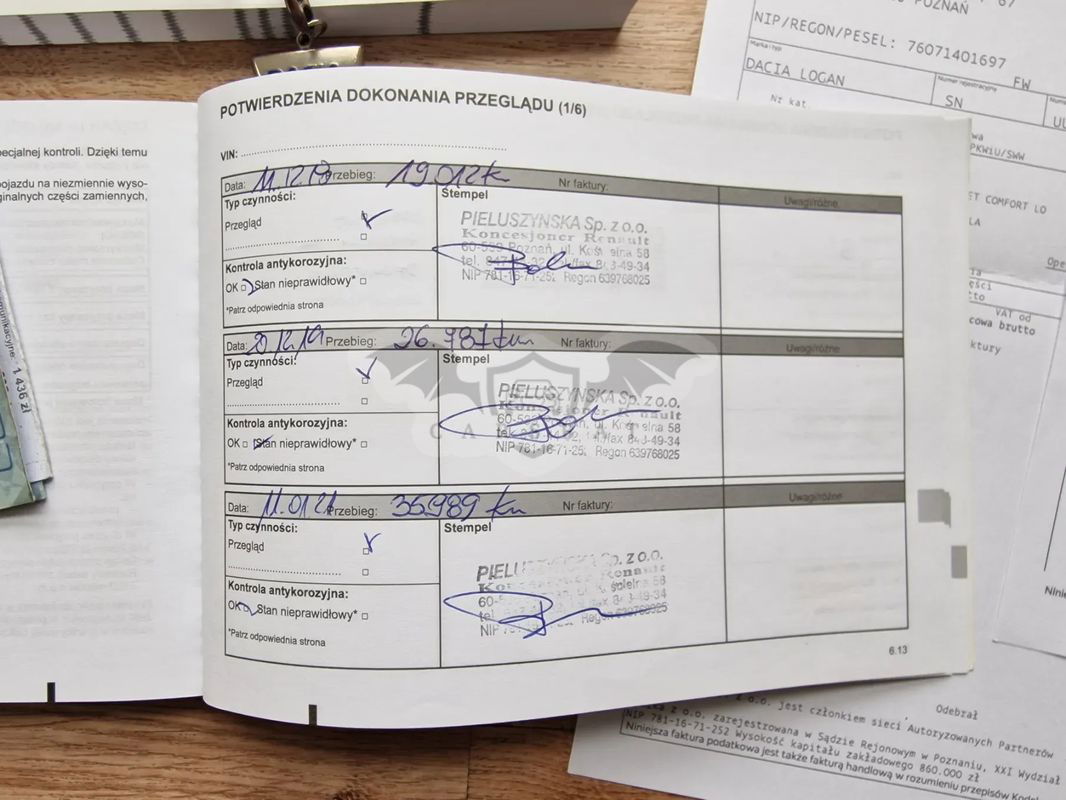 POTWIERDZENIA DOKONANIA PRZEGLĄDU (1/6)
VIN:
Data: 11.12.18 Przebieg: 19.012 k Nr faktury: Uwagi/różne
Typ czynności: Stempel
Przegląd
PIELUSZYŃSKA Sp. z o.o.
Koncesjoner Renault
Poznań, ul. 58
Kontrola antykorozyjna:
OK Stan nieprawidłowy*
NIP 781-16-71-252 Regon 639768025
*Patrz odpowiednia strona
Data: 20.12.19 Przebieg: 26.781 km Nr faktury: Uwagi/różne
Typ czynności: Stempel
Przegląd
PIELUSZYŃSKA Sp. z o.o.
Koncesjoner Renault
ul. 58
Kontrola antykorozyjna:
OK Stan nieprawidłowy*
NIP 781-16-71-252 Regon 639768025
*Patrz odpowiednia strona
Data: 11.01.21 Przebieg: 35.989 km Nr faktury: Uwagi/różne
Typ czynności: Stempel
Przegląd
Sp. z o.o.
Renault
58
Kontrola antykorozyjna:
OK Stan nieprawidłowy*
NIP Regon 639768025
*Patrz odpowiednia strona
6.13
ecjalnej kontroli. Dzięki temu
pojazdu na niezmiennie wyso-
ginalnych części zamiennych,
1 436 zł
POZNAŃ
NIP/REGON/PESEL: 76071401697
Marka i typ
DACIA LOGAN
FW
Numer rejestracyjny
SN
Nz kat.
PKWiU/SWW
ET COMFORT LO
VAT od
cowa brutto
Odebrał
z o.o. jest członkiem sieci Autoryzowanych Partnerów
z o.o. zarejestrowana w Sądzie Rejonowym w Poznaniu, XXI Wydział
NIP 781-16-71-252 Wysokość kapitału zakładowego 860.000 zł
Niniejsza faktura podatkowa jest także fakturą handlową w rozumieniu przepisów